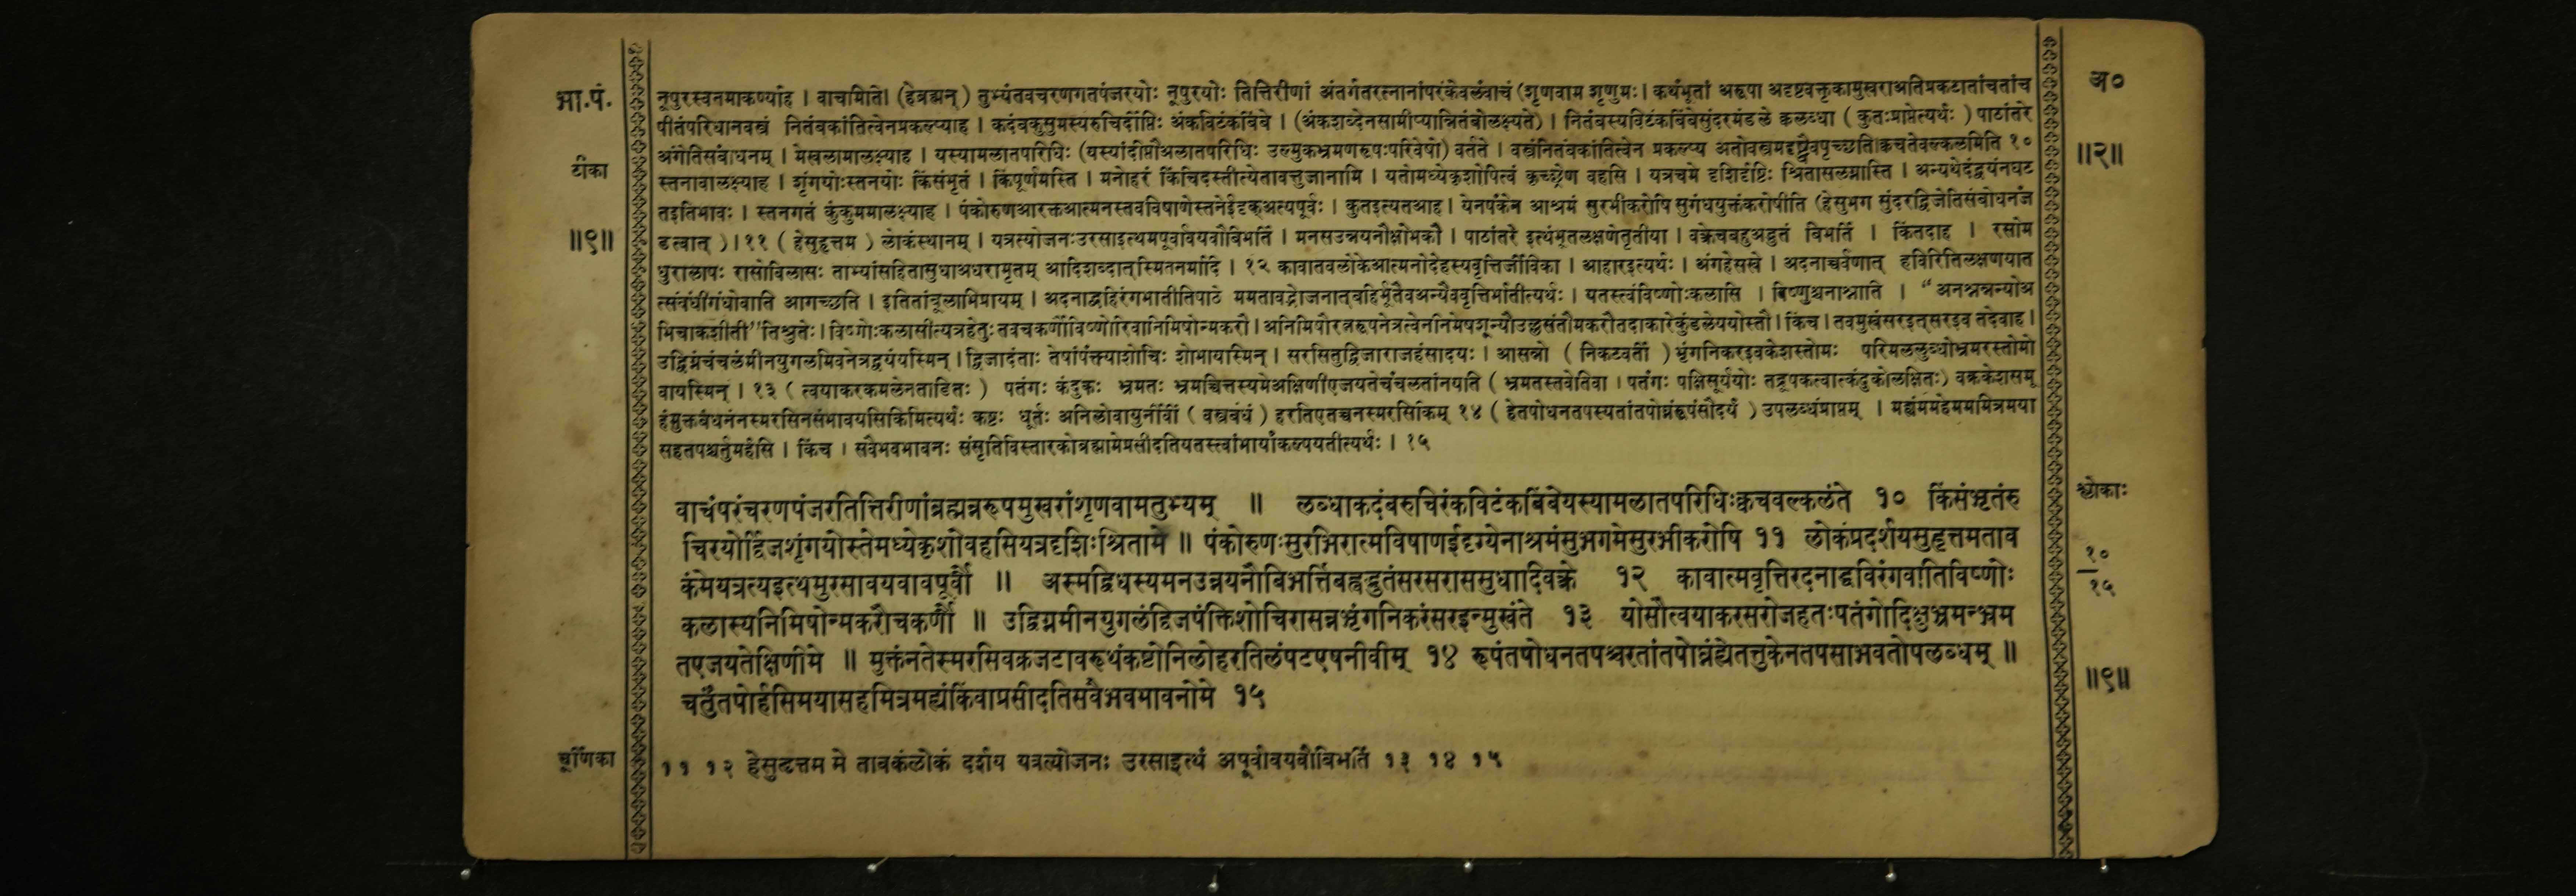 भा.पं.
अ०
नूपुरस्वनमाकर्ण्याह । वाचमिति। (हेब्रह्मन्) तुभ्यंतवचरणगतपंजरयोः नूपुरयोः तित्तिरीणां अंतर्गतरत्नानांपरंकेवलंवाचं (शृणवाम शृणुमः। कथंभूतां अरूपा अदृष्टवक्तृकामुखराअतिप्रकटातांचतांच
पीतंपरिधानवस्त्रं नितंबकांतित्वेनप्रकल्प्याह । कदंबकुसुमस्यरुचिर्दीप्तिः अंकविटंकबिंबे । (अंकशब्देनसामीप्यान्नितंबोलक्ष्यते) । नितंबस्यविटंकबिंबेसुंदरमंडले कलब्धा (कुतःप्राप्तेत्यर्थः) पाठांतरे
अंगेतिसंबोधनम् । मेखलामालक्ष्याह । यस्यामलातपरिधिः (यस्यांदीप्तौअलातपरिधिः उल्मुकभ्रमणरूपःपरिवेषो) वर्तते । वस्त्रंनितंबकांतित्वेन प्रकल्प्य अतोवस्त्रमदृष्ट्वैवपृच्छति।क्वचतेवल्कलमिति १०
टीका
॥२॥
स्तनावालक्ष्याह । शृंगयोःस्तनयोः किंसंभृतं । किंपूर्णमस्ति । मनोहरं किंचिदस्तीत्येतावत्तुजानामि । यतोमध्येकृशोपित्वं कृच्छ्रेण वहसि । यत्रचमे दृशिर्दृष्टिः श्रितासलग्नास्ति । अन्यथेदंद्वयंनघट
तइतिभावः । स्तनगतं कुंकुममालक्ष्याह । पंकोरुणआरक्तआत्मनस्तवविषाणेस्तनेईदृक्अत्यपूर्वः । कुतइत्यतआह । येनपंकेन आश्रमं सुरभीकरोषि सुगंधयुक्तंकरोषीति (हेसुभग सुंदरद्विजेतिसंबोधनंज
॥९॥
डत्वात् ) । ११ ( हेसुहृत्तम ) लोकंस्थानम् । यत्रत्योजनःउरसाइत्थमपूर्वावयवौबिभर्ति । मनसउन्नयनौक्षोभकौ । पाठांतरे इत्थंभूतलक्षणेतृतीया । वक्त्रेचबहुअद्भुतं बिभर्ति । किंतदाह । रसोम
धुरालापः रासोविलासः ताभ्यांसहितासुधाअधरामृतम् आदिशब्दात्स्मितनर्मादि । १२ कावातवलोकेआत्मनोदेहस्यवृत्तिर्जीविका । आहारइत्यर्थः । अंगहेसखे । अदनाच्चर्वणात् हविरितिलक्षणयात
त्संबंधीगंधोवाति आगच्छति । इतितांबूलाभिप्रायम् । अदनाद्बहिरंगभातीतिपाठे ममतावद्भोजनात्बहिर्भूतैवअन्यैववृत्तिर्भातीत्यर्थः । यतस्त्वंविष्णोःकलासि । विष्णुश्चनाश्नाति । “अनश्नन्नन्योअ
भिचाकशीती”तिश्रुतेः । विष्णोःकलासीत्यत्रहेतुःतवचकर्णौविष्णोरिवानिमिषोन्मकरौ । अनिमिषौरत्नरूपनेत्रत्वेननिमेषशून्यौउल्लसंतौमकरौतदाकारेकुंडलेययोस्तौ । किंच । तवमुखंसरइत्सरइव तदेवाह ।
उद्विग्नंचंचलंमीनयुगलमिवनेत्रद्वयंयस्मिन् । द्विजादंताः तेषांपंक्त्याशोचिः शोभायस्मिन् । सरसितुद्विजाराजहंसादयः । आसन्नो ( निकटवर्ती ) भृंगनिकरइवकेशस्तोमः परिमललुब्धोभ्रमरस्तोमो
वायस्मिन् । १३ ( त्वयाकरकमलेनताडितः ) पतंगः कंदुकः भ्रमतः भ्रमच्चित्तस्यमेअक्षिणीएजयतेचंचलतांनयति ( भ्रमतस्तवेतिवा । पतंगः पक्षिसूर्ययोः तद्रूपकत्वात्कंदुकोलक्षितः) वक्रकेशसमू
हंमुक्तबंधनंनस्मरसिनसंभावयसिकिमित्यर्थः कष्टः धूर्तः अनिलोवायुर्नीवीं ( वस्त्रबंधं ) हरतिएतच्चनस्मरसिकिम् १४ ( हेतपोधनतपस्यतांतपोघ्नंरूपंसौंदर्यं ) उपलब्धंप्राप्तम् । मह्यंममहेमममित्रमया
सहतपश्चर्तुमर्हसि । किंच । सवैभवभावनः संसृतिविस्तारकोब्रह्मामेप्रसीदतियतस्त्वांभार्यांकल्पयतीत्यर्थः । १५
श्लोकाः
वाचंपरंचरणपंजरतित्तिरीणांब्रह्मन्नरूपमुखरांशृणवामतुभ्यम् ॥ लब्धाकदंबरुचिरंकविटंकबिंबेयस्यामलातपरिधिःक्वचवल्कलंते १० किंसंभृतंरु
चिरयोर्द्विजशृंगयोस्तेमध्येकृशोवहसियत्रदृशिःश्रितामे ॥ पंकोरुणःसुरभिरात्मविषाणईदृग्येनाश्रमंसुभगमेसुरभीकरोषि ११ लोकंप्रदर्शयसुहृत्तमताव
१०
१५
कंमेयत्रत्यइत्थमुरसावयवावपूर्वौ ॥ अस्मद्विधस्यमनउन्नयनौबिभर्त्तिबह्वद्भुतंसरसराससुधादिवक्त्रे १२ कावात्मवृत्तिरदनाद्धविरंगवातिविष्णोः
कलास्यनिमिषोन्मकरौचकर्णौ ॥ उद्विग्नमीनयुगलंद्विजपंक्तिशोचिरासन्नभृंगनिकरंसरइन्मुखंते १३ योसौत्वयाकरसरोजहतःपतंगोदिक्षुभ्रमन्भ्रम
तएजयतेक्षिणीमे ॥ मुक्तंनतेस्मरसिवक्रजटावरूथंकष्टोनिलोहरतिलंपटएषनीवीम् १४ रूपंतपोधनतपश्चरतांतपोघ्नंह्येतत्तुकेनतपसाभवतोपलब्धम् ॥
॥९॥
चर्तुंतपोर्हसिमयासहमित्रमह्यंकिंवाप्रसीदतिसवैभवभावनोमे १५
चूर्णिका
११ १२ हेसुहृत्तम मे तावकंलोकं दर्शय यत्रत्योजनः उरसाइत्थं अपूर्वावयवौबिभर्ति १३ १४ १५